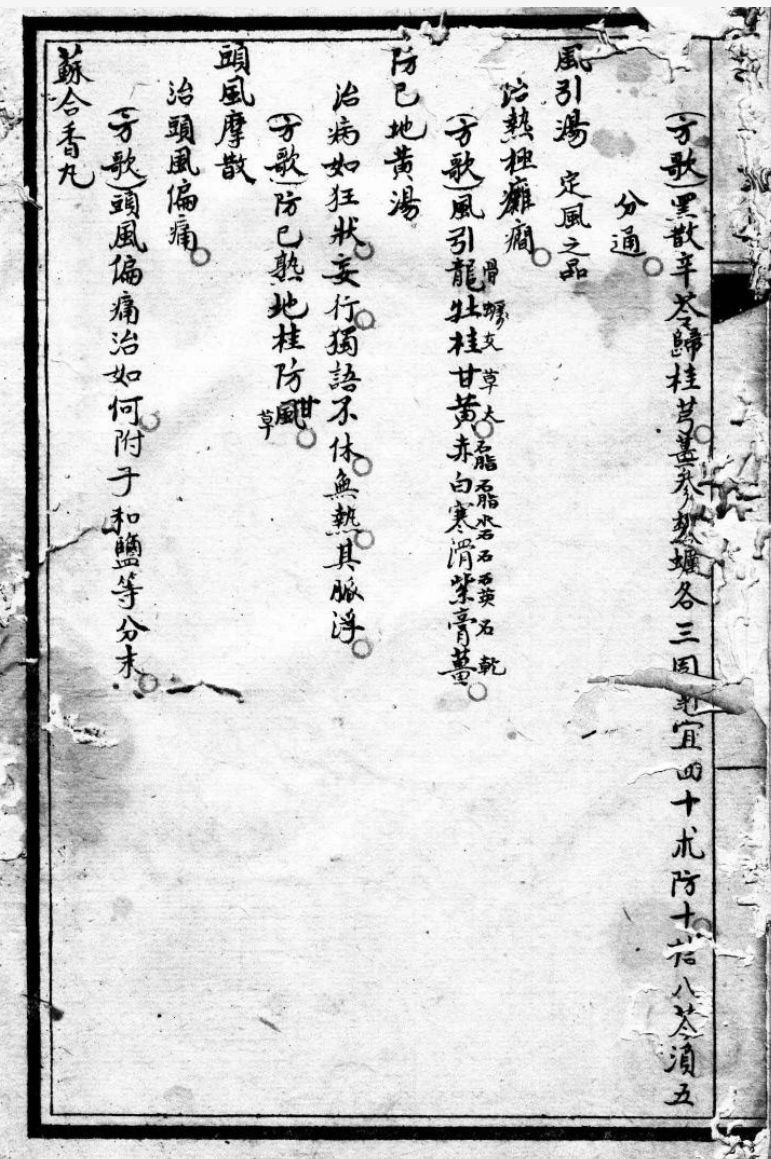 （方歌）黑散辛苓歸桂芎薑參礬蠣各三同菊宜四十朮防十桔八芩湏五
分通
風引湯　定風之品
治熱極癱癇
（方歌）風引龍骨牡蠣桂支甘草黃大赤石脂白石脂寒水石滑石紫石英膏石薑乾
防已地黃湯
治病如狂狀妄行獨語不休無熱其脈浮
（方歌）防已熟地桂防風甘草
頭風摩散
治頭風偏痛
（方歌）頭風偏痛治如何附子和鹽等分末
蘇合香丸